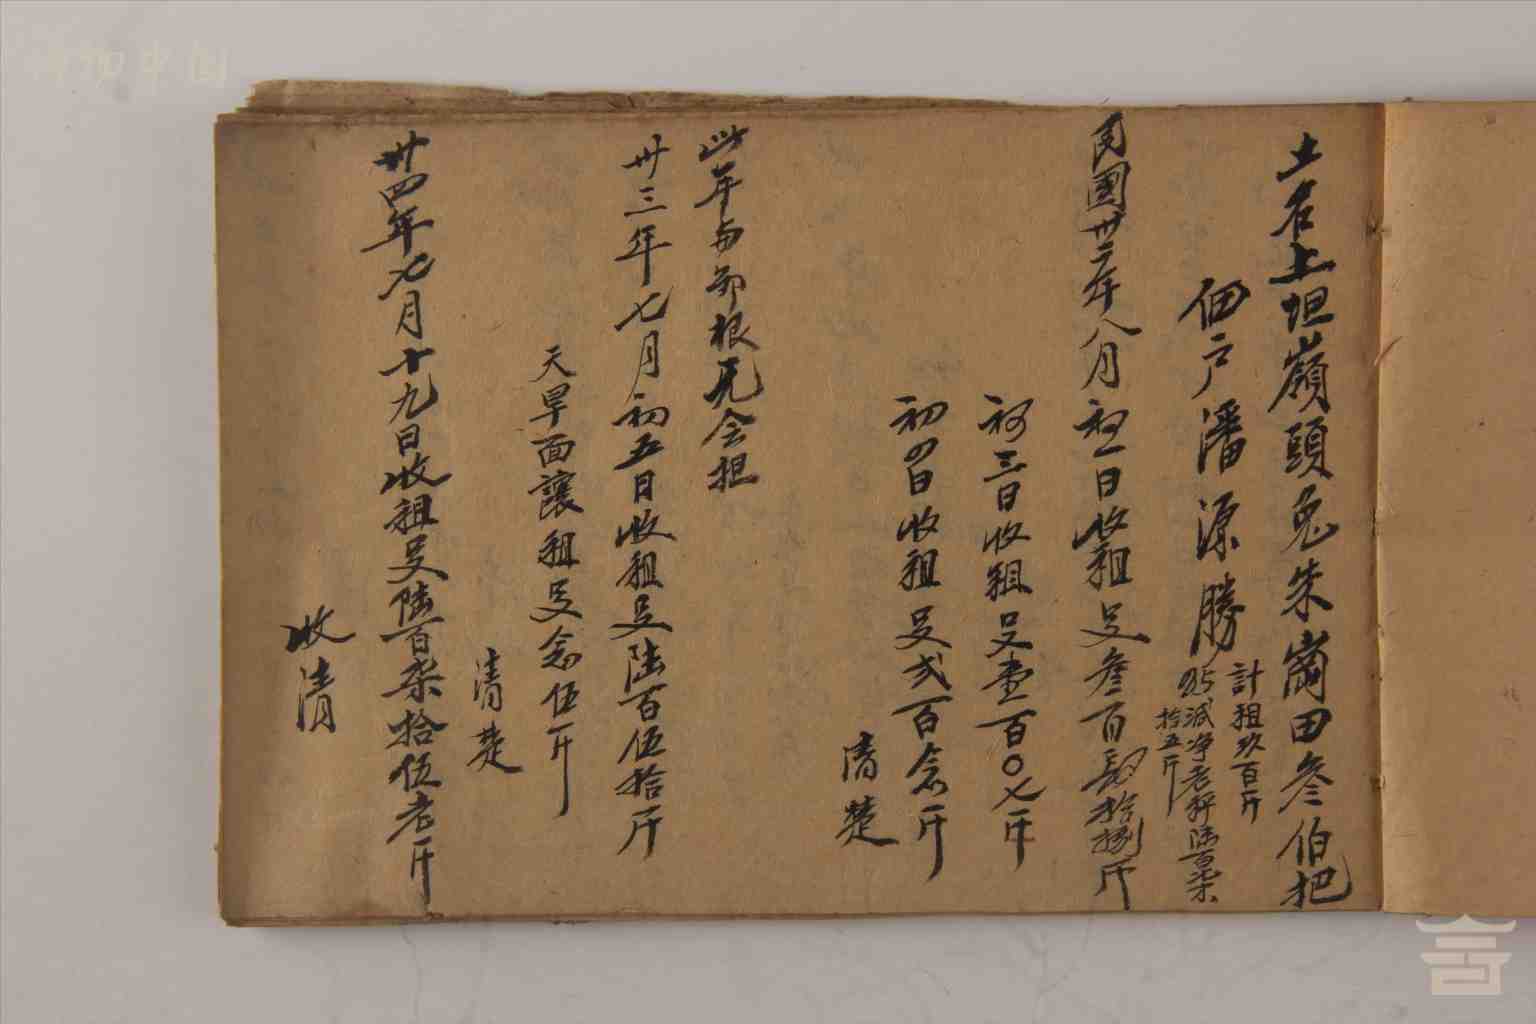 土名上坦嶺頭兔朱崗田叁伯把
佃户潘源勝
計租玖百斤
85減净老秤陸百柒
拾五斤
民國卅二年八月初一日收租足叁百肆拾捌斤
初三日收租足壹百〇七斤
初四日收租足弍百念斤
清楚
此年与郭根元仝担
卅三年七月初五日收租足陆百伍拾斤
天旱面讓租足念伍斤
清楚
卅四年七月十九日收租足陸百柒拾伍老斤
收清